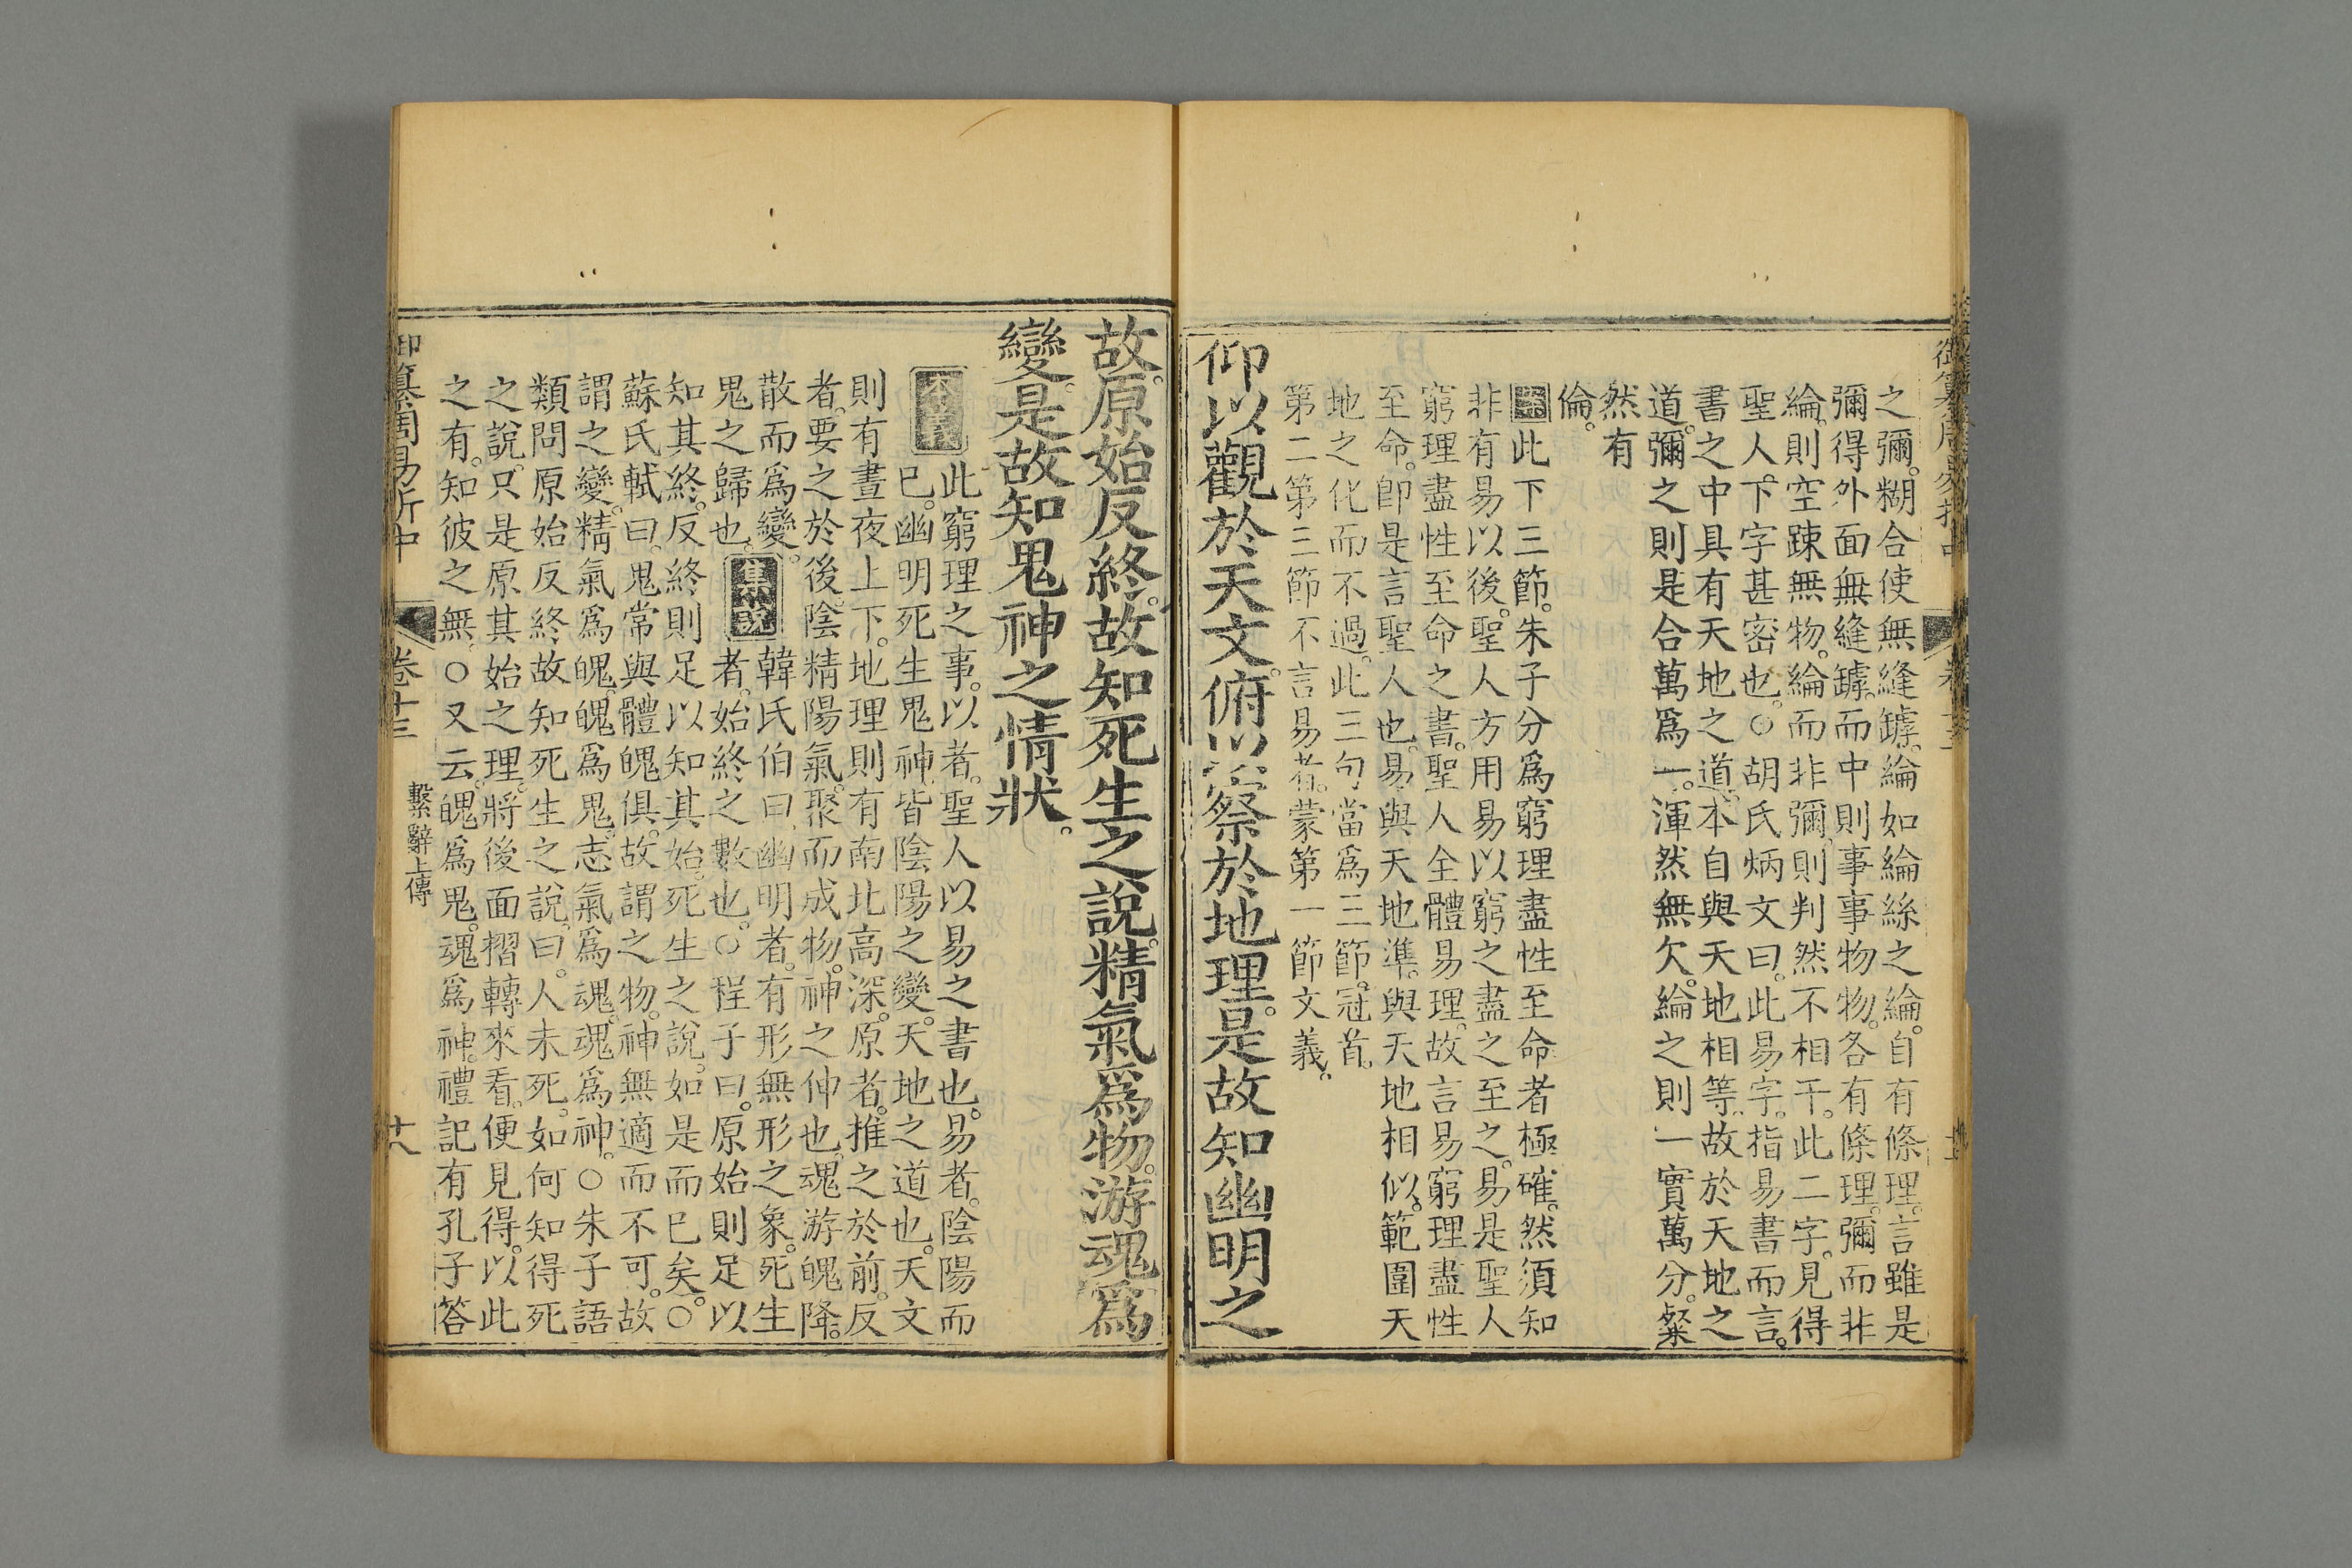 之彌。糊合使無縫罅。綸如綸絲之綸。自有條理。言雖是
彌得外面無縫罅。而中則事事物物。各有條理。彌而非
綸。則空疎無物。綸而非彌。則判然不相干。此二字。見得
聖人下字甚密也。○胡氏炳文曰。此易字。指易書而言。
書之中具有天地之道。本自與天地相等。故於天地之
道。彌之則是合萬爲一。渾然無欠。綸之則一實萬分。粲
然有
倫。
案此下三節。朱子分爲窮理盡性至命者極確。然須知
非有易以後。聖人方用易以窮之盡之至之。易是聖人
窮理盡性至命之書。聖人全體易理。故言易窮理盡性
至命。即是言聖人也。易與天地準。與天地相似。範圍天
地之化而不過。此三句當爲三節冠首。
第二第三節不言易者。蒙第一節文義。
仰以觀於天文。俯以察於地理。是故知幽明之
故。原始反終。故知死生之說。精氣爲物。游魂爲
變。是故知鬼神之情狀。
本義 此窮理之事。以者。聖人以易之書也。易者。陰陽而
已。幽明死生鬼神。皆陰陽之變。天地之道也。天文
則有晝夜上下。地理則有南北高深。原者。推之於前。反
者。要之於後。陰精陽氣。聚而成物。神之伸也。魂游魄降。
散而爲變。 集說 韓氏伯曰。幽明者。有形無形之象。死生
鬼之歸也。 者。始終之數也。○程子曰。原始則足以
知其終。反終則足以知其始。死生之說。如是而已矣。○
蘇氏軾曰。鬼常與體魄俱。故謂之物。神無適而不可。故
謂之變。精氣爲魄。魄爲鬼。志氣爲魂。魂爲神。○朱子語
類問原始反終故知死生之說。曰。人未死。如何知得死
之說。只是原其始之理。將後面摺轉來看。便見得。以此
之有。知彼之無。○又云。魄爲鬼。魂爲神。禮記有孔子答
御纂周易折中 卷十三 繫辭上傳 十八